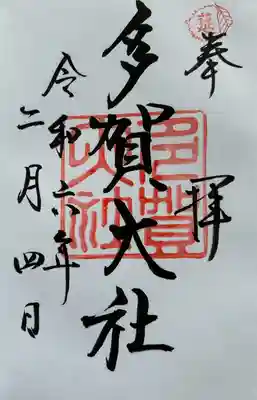 奉拝
多賀大社
令和六年
二月四日